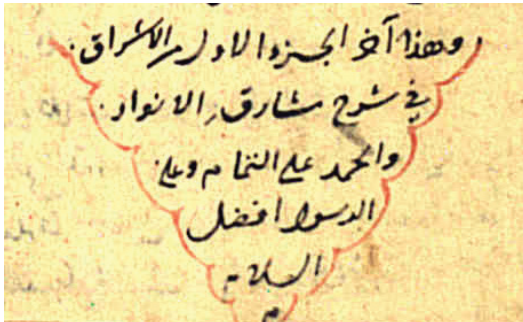 وهذا آخر الجزء الاول من الاشراق
في شرح مشارق الانوار
والحمد على التمام وعلى
الرسول افضل
السلام
م